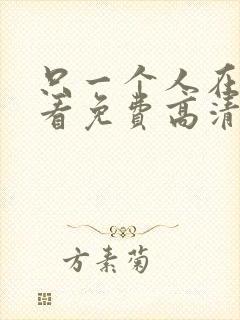 只一个人在
看免费高清
方素菊